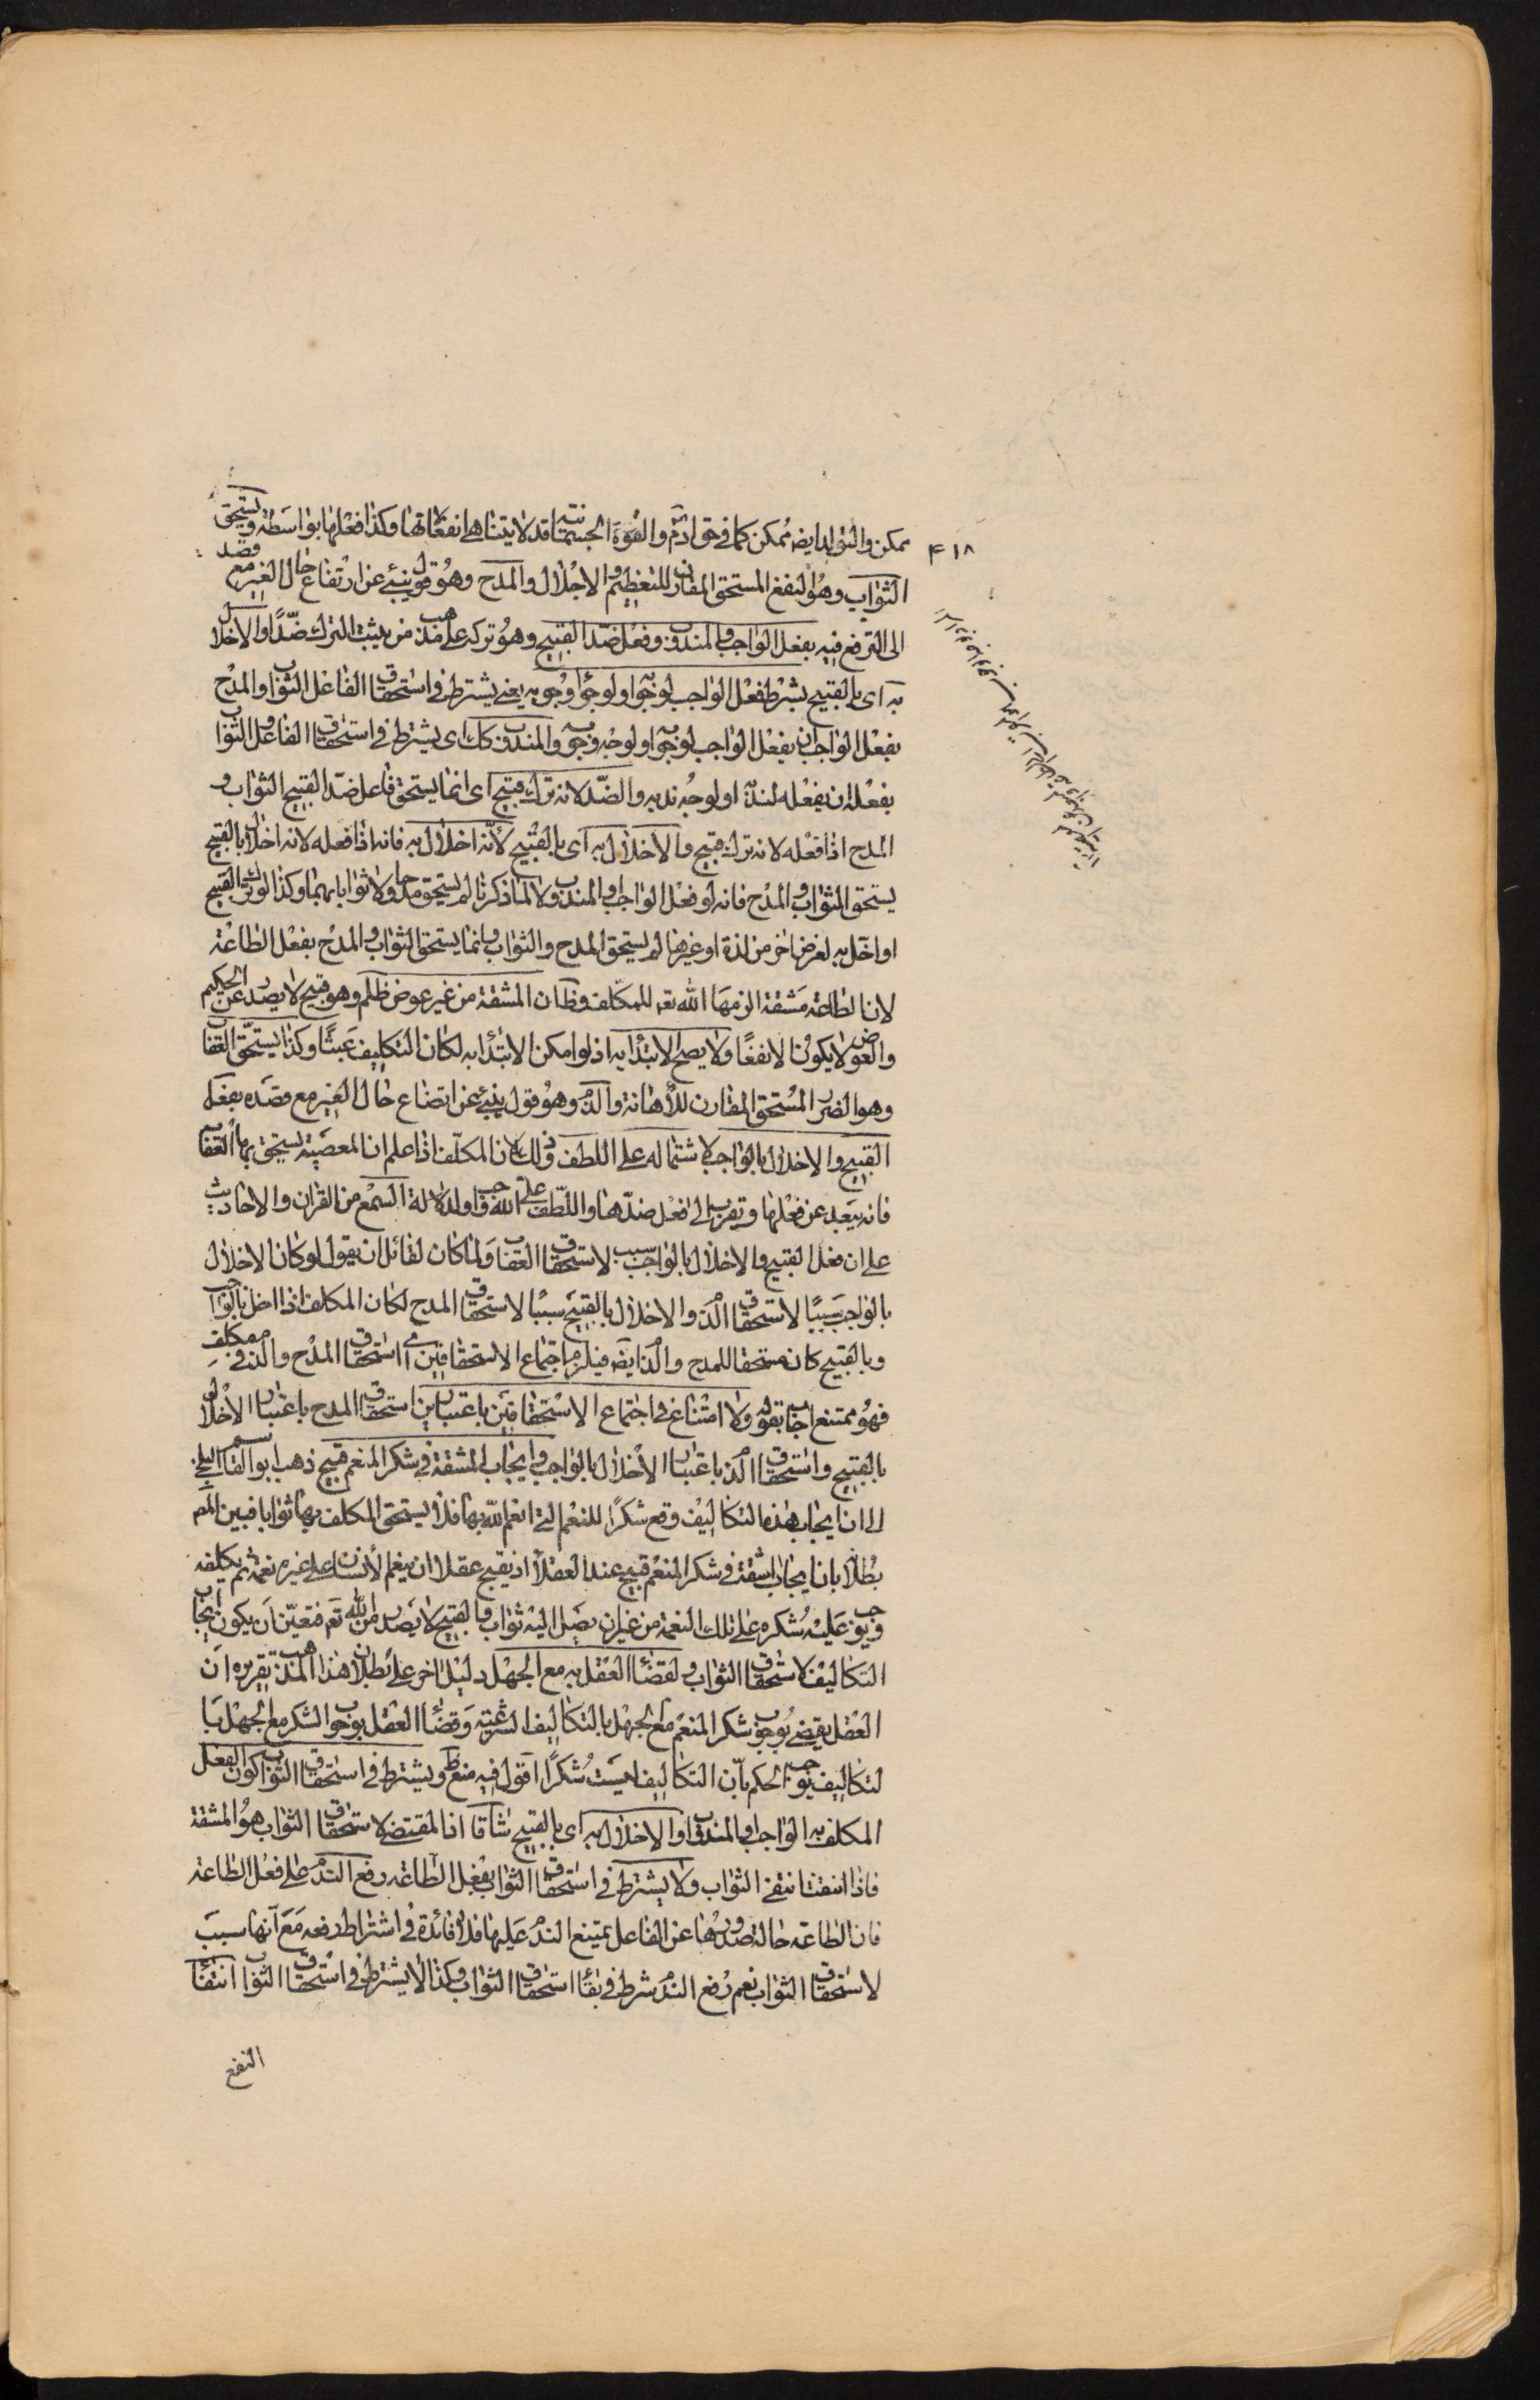 ممكن والتوالد ايضه ممكن كما في حق ادم والقوة الجسمانية قد لا يتناهى انفعالاتها وكذا فعلها بواسطة ويستحق
۴۱۸
الثواب وهو النفع المستحق المقارن للتعظيم والاجلال والمدح وهو قول ينبئ عن ارتفاع حال الغير مع قصد
الى الترفع فيه بفعل الواجب والمندوب وفعل ضد القبيح وهو تركه على مذهب من يثبت الترك ضدًّا والاخلال
به اى بالقبيح بشرط فعل الواجب لوجوبه او لوجه وجوبه يعنى يشترط في استحقاق الفاعل الثواب والمدح
بفعل الواجب ان يفعل الواجب لوجوبه او لوجه وجوبه والمندوب كك اى يشترط في استحقاق الفاعل الثواب
بفعله ان يفعله لندبه او لوجه ندبه والضد لانه ترك قبيح اى انما يستحق فاعل ضد القبيح الثواب و
المدح اذا فعله لانه ترك قبيح والاخلال به اى بالقبيح لانه اخلال به فانه اذا فعله لانه اخلال بالقبيح
يستحق الثواب والمدح فانه لو فعل الواجب والمندوب لا لما ذكرنا لم يستحق مدحا ولا ثوابا بهما وكذا لو ترك القبيح
او اخل به لغرض اخر من لذة او غيرها لم يستحق المدح والثواب وانما يستحق الثواب والمدح بفعل الطاعة
لان الطاعة مشقة الزمها الله تع للمكلف وظ ان المشقة من غير عوض ظلم وهو قبيح لا يصدر عن الحكيم
والعوض لا يكون الا نفعًا ولا يصح الابتداء به اذ لو امكن الابتداء به لكان التكليف عبثًا وكذا يستحق العقاب
وهو الضرر المستحق المقارن للاهانة والذم وهو قول ينبئ عن اتضاع حال الغير مع قصده بفعل
القبيح والاخلال بالواجب لاشتماله على اللطف وذلك لان المكلف اذا علم ان المعصية يستحق بها العقاب
فانه يبعد عن فعلها ويقرب الى فعل ضدها واللطف على الله واجب ولدلالة السمع من القران والاحاديث
على ان فعل القبيح والاخلال بالواجب سبب لاستحقاق العقاب ولما كان لقائل ان يقول لو كان الاخلال
بالواجب سببًا لاستحقاق الذم والاخلال بالقبيح سببًا لاستحقاق المدح لكان المكلف اذا اخل بالواجب
وبالقبيح كان مستحقا للمدح والذم ايضه فيلزم اجتماع الاستحقاقين اى استحقاق المدح والذم في مكلف
فهو ممتنع اجاب بقوله ولا امتناع في اجتماع الاستحقاقين باعتبارين استحقاق المدح باعتبار الاخلال
بالقبيح واستحقاق الذم باعتبار الاخلال بالواجب وايجاب المشقة في شكر المنعم قبيح ذهب ابو القاسم البلخى
الى ان ايجاب هذه التكاليف وقع شكرًا للنعم التى انعم الله بها فلا يستحق المكلف بها ثوابا فبين المص
بطلانه بان ايجاب المشقة في شكر المنعم قبيح عند العقلاء اذ يقبح عقلا ان ينعم الانسان على غيره نعمة ثم يكلفه
ويوجب عليه شكره على تلك النعمة من غير ان يصل اليه ثواب والقبيح لا يصدر من الله تع فتعين ان يكون ايجاب
التكاليف لاستحقاق الثواب ولقضاء العقل به مع الجهل دليل اخر على بطلان هذا المذهب تقريره ان
العقل يقضى بوجوب شكر المنعم مع الجهل بالتكاليف الشرعية وقضاء العقل بوجوب الشكر مع الجهل با
لتكاليف يوجب الحكم بان التكاليف ليست شكرًا اقول فيه منع ظ ويشترط في استحقاق الثواب كون الفعل
المكلف به الواجب والمندوب او الاخلال به اى بالقبيح شاقا اذ المقتضى لاستحقاق الثواب هو المشقة
فاذا انتفت انتفى الثواب ولا يشترط في استحقاق الثواب بفعل الطاعة رفع الندم على فعل الطاعة
فان الطاعة حالة صدورها عن الفاعل يمتنع الندم عليها فلا فائدة في اشتراط رفعه مع انها سبب
لاستحقاق الثواب نعم رفع الندم شرط في بقاء استحقاق الثواب وكذا لا يشترط في استحقاق الثواب انتفاء
النفع